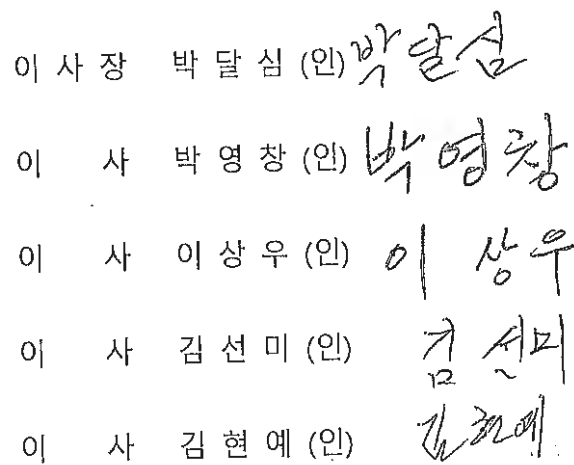 이 사 장 박 달 심 (인) 박달심
이 사 박 영 창 (인) 박영창
이 사 이 상 우 (인) 이상우
이 사 김 선 미 (인) 김선미
이 사 김 현 예 (인) 김현예